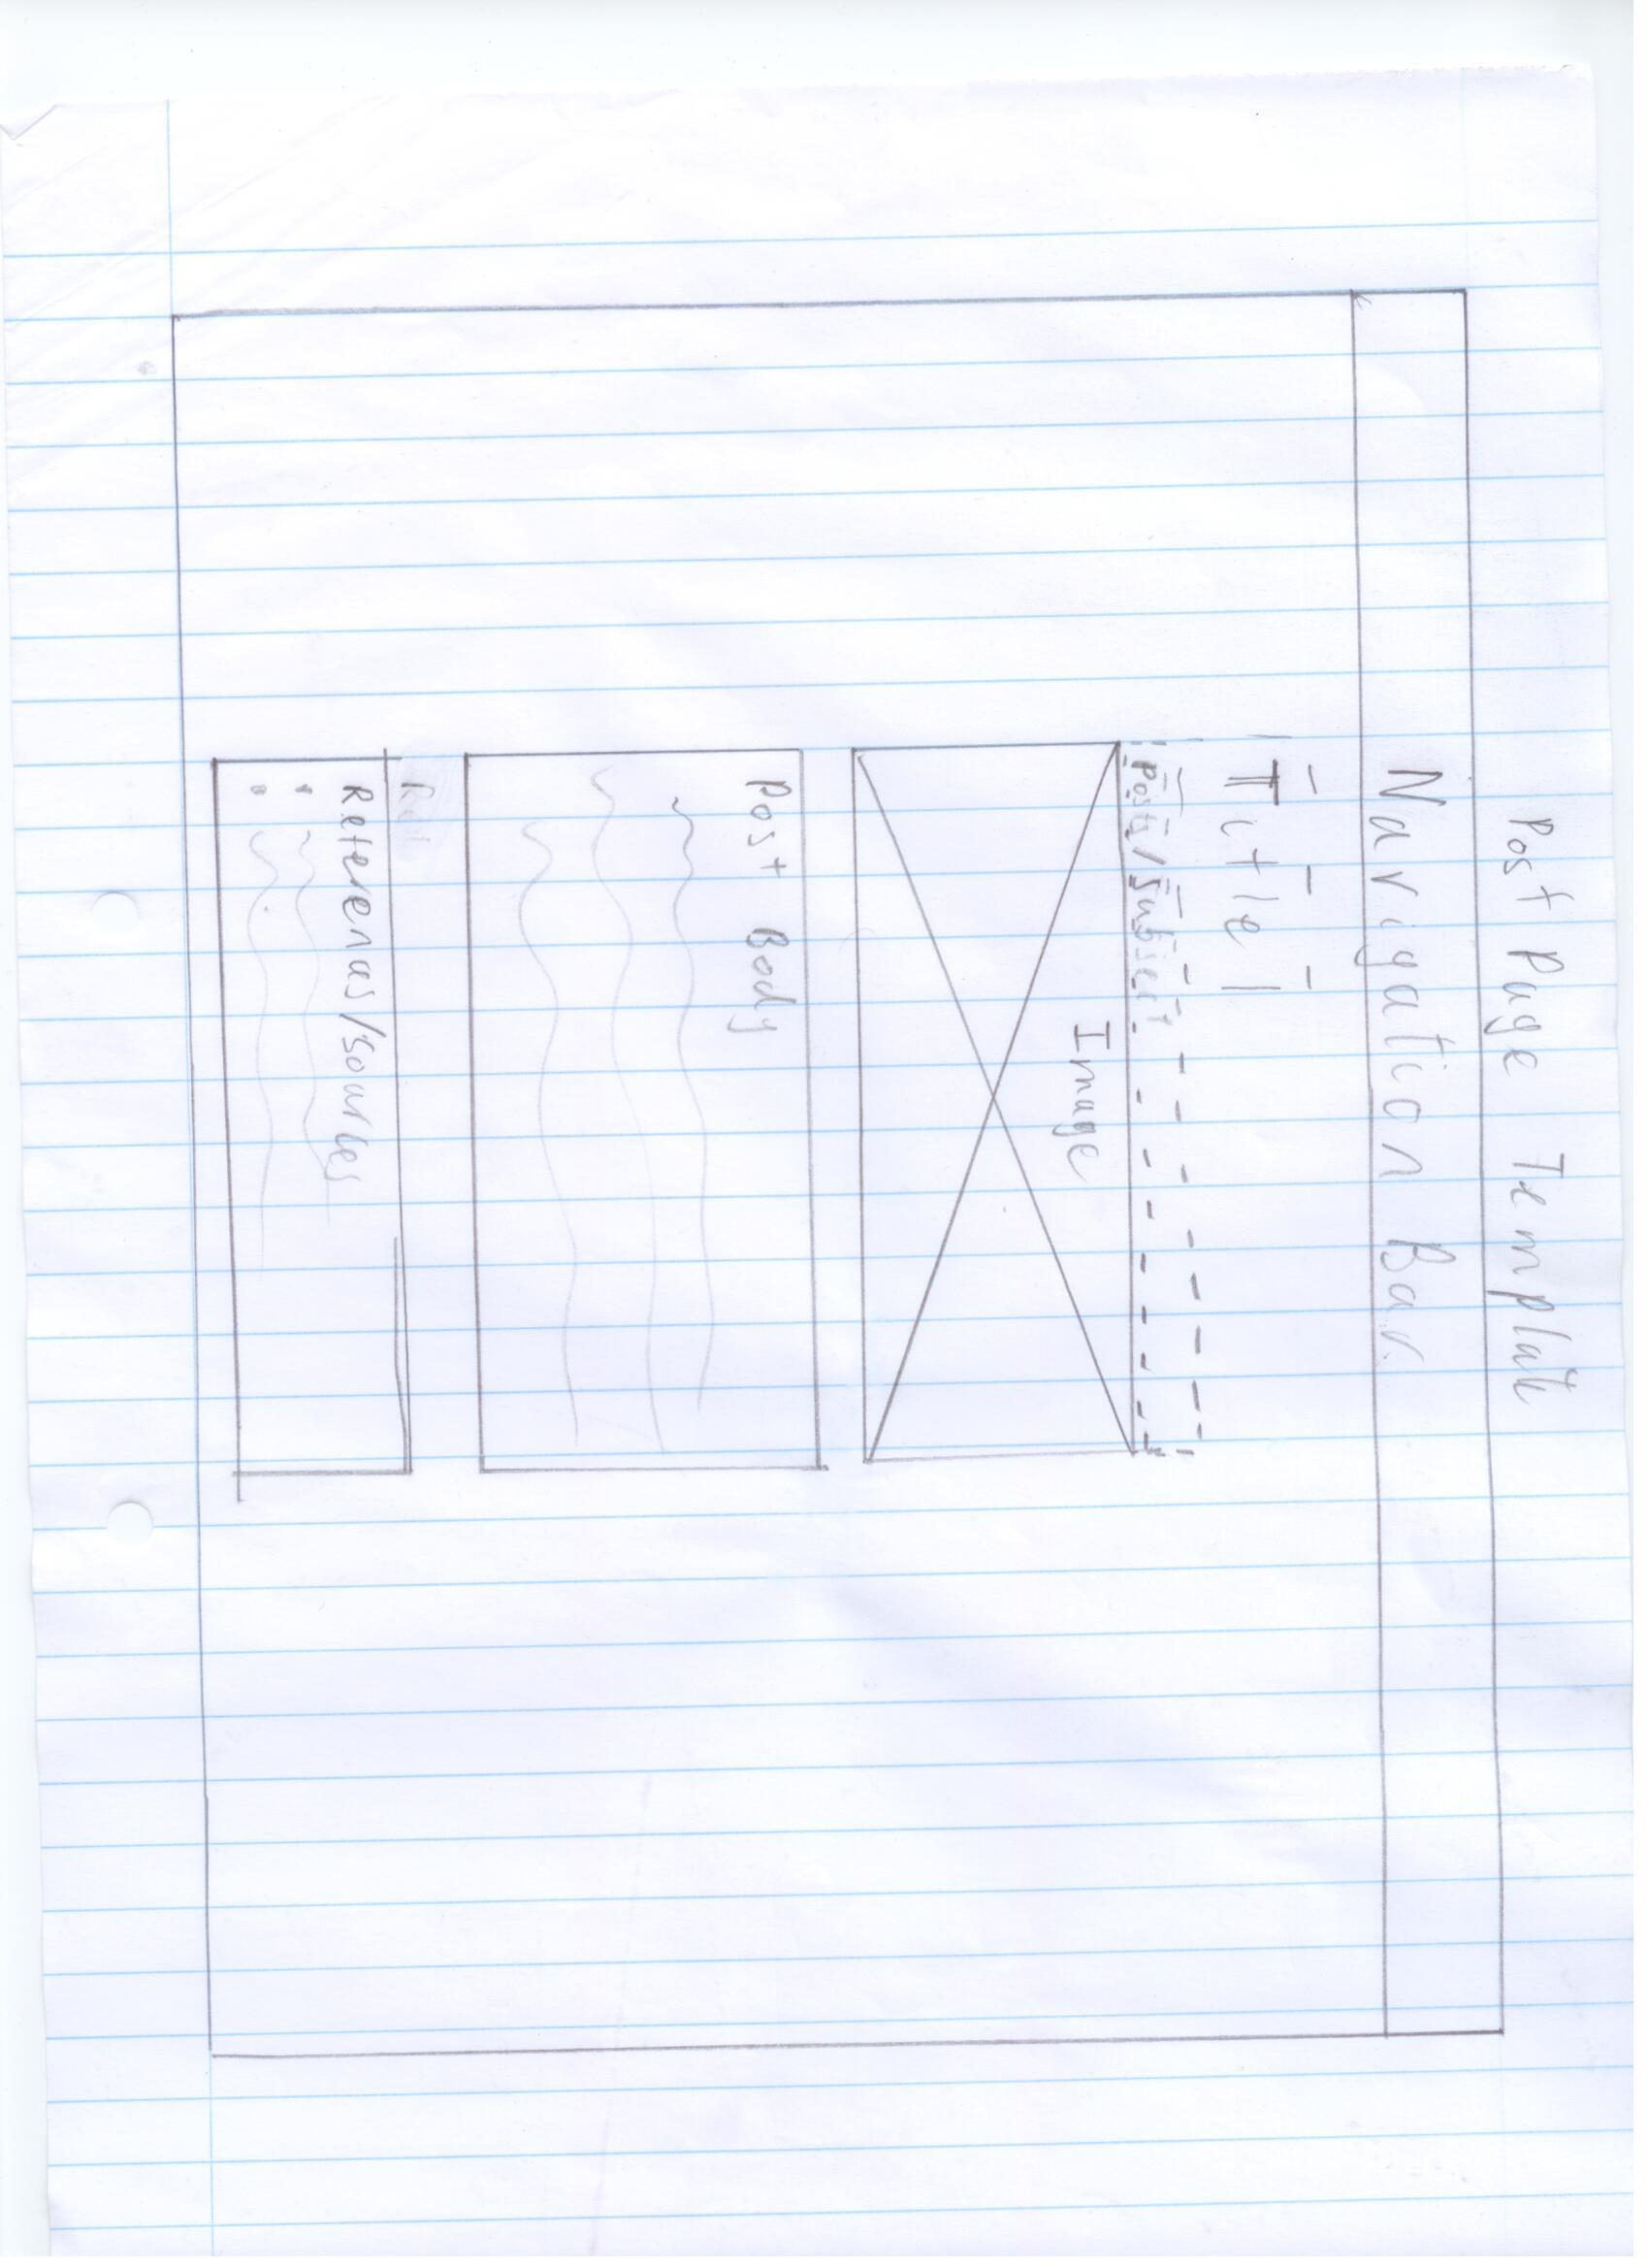 Post Page Template
Navigation Bar
Title
Posts/Subject
Image
Post Body
References/Sources